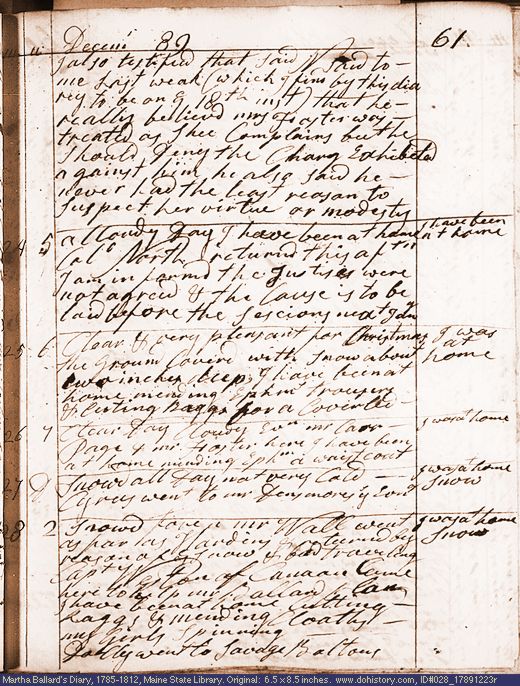 Decem 89 61
I also testified that said North said to
me last weak (which I find by this dia
ry to be on ye 18th inst) that he
really believd mrs Foster was
treated as Shee Complains but he
Should Deny the Charg Exhibeted
against him. he also said he
never had the least reason to
Suspect her virtue or modesty
24 5 a Cloudy Day. I have been at home I have been
Col North returnd this afttn at home
I am informd the Justises were
not agreed & the Cause is to be
laid before the Sescions next Jany
25 6 Clear & very pleasant for Christmas I was
the Ground Coverd with Snow about at
two inches Deep. I have been at home
home mending Ephm trousers
& Cutting Raggs for a Coverled
26 7 Clear Day Cloudy Evn mr Carr
Page & mr Foster here I have been I was at home
at home mending Ephm a waistcoat
27 Snowd all Day not very Cold I was at home
Cyrus went to mr Densmores ys Evng Snow
28 2 Snowd mr Ballard went I was at home
as far as Jardens & returnd by Snow
reason of ye Snow & bad traveling
Capt Weston of Canaan Came
here to help mr Ballard
I have been at home Cutting
Raggs & mending Cloaths
my Girls Spinning
Dolly went to Savage Boltons
Martha Ballard's Diary, 1785-1812, Maine State Library. Original: 6.5 x 8.5 inches. www.dohistory.com, ID#028_17891223r